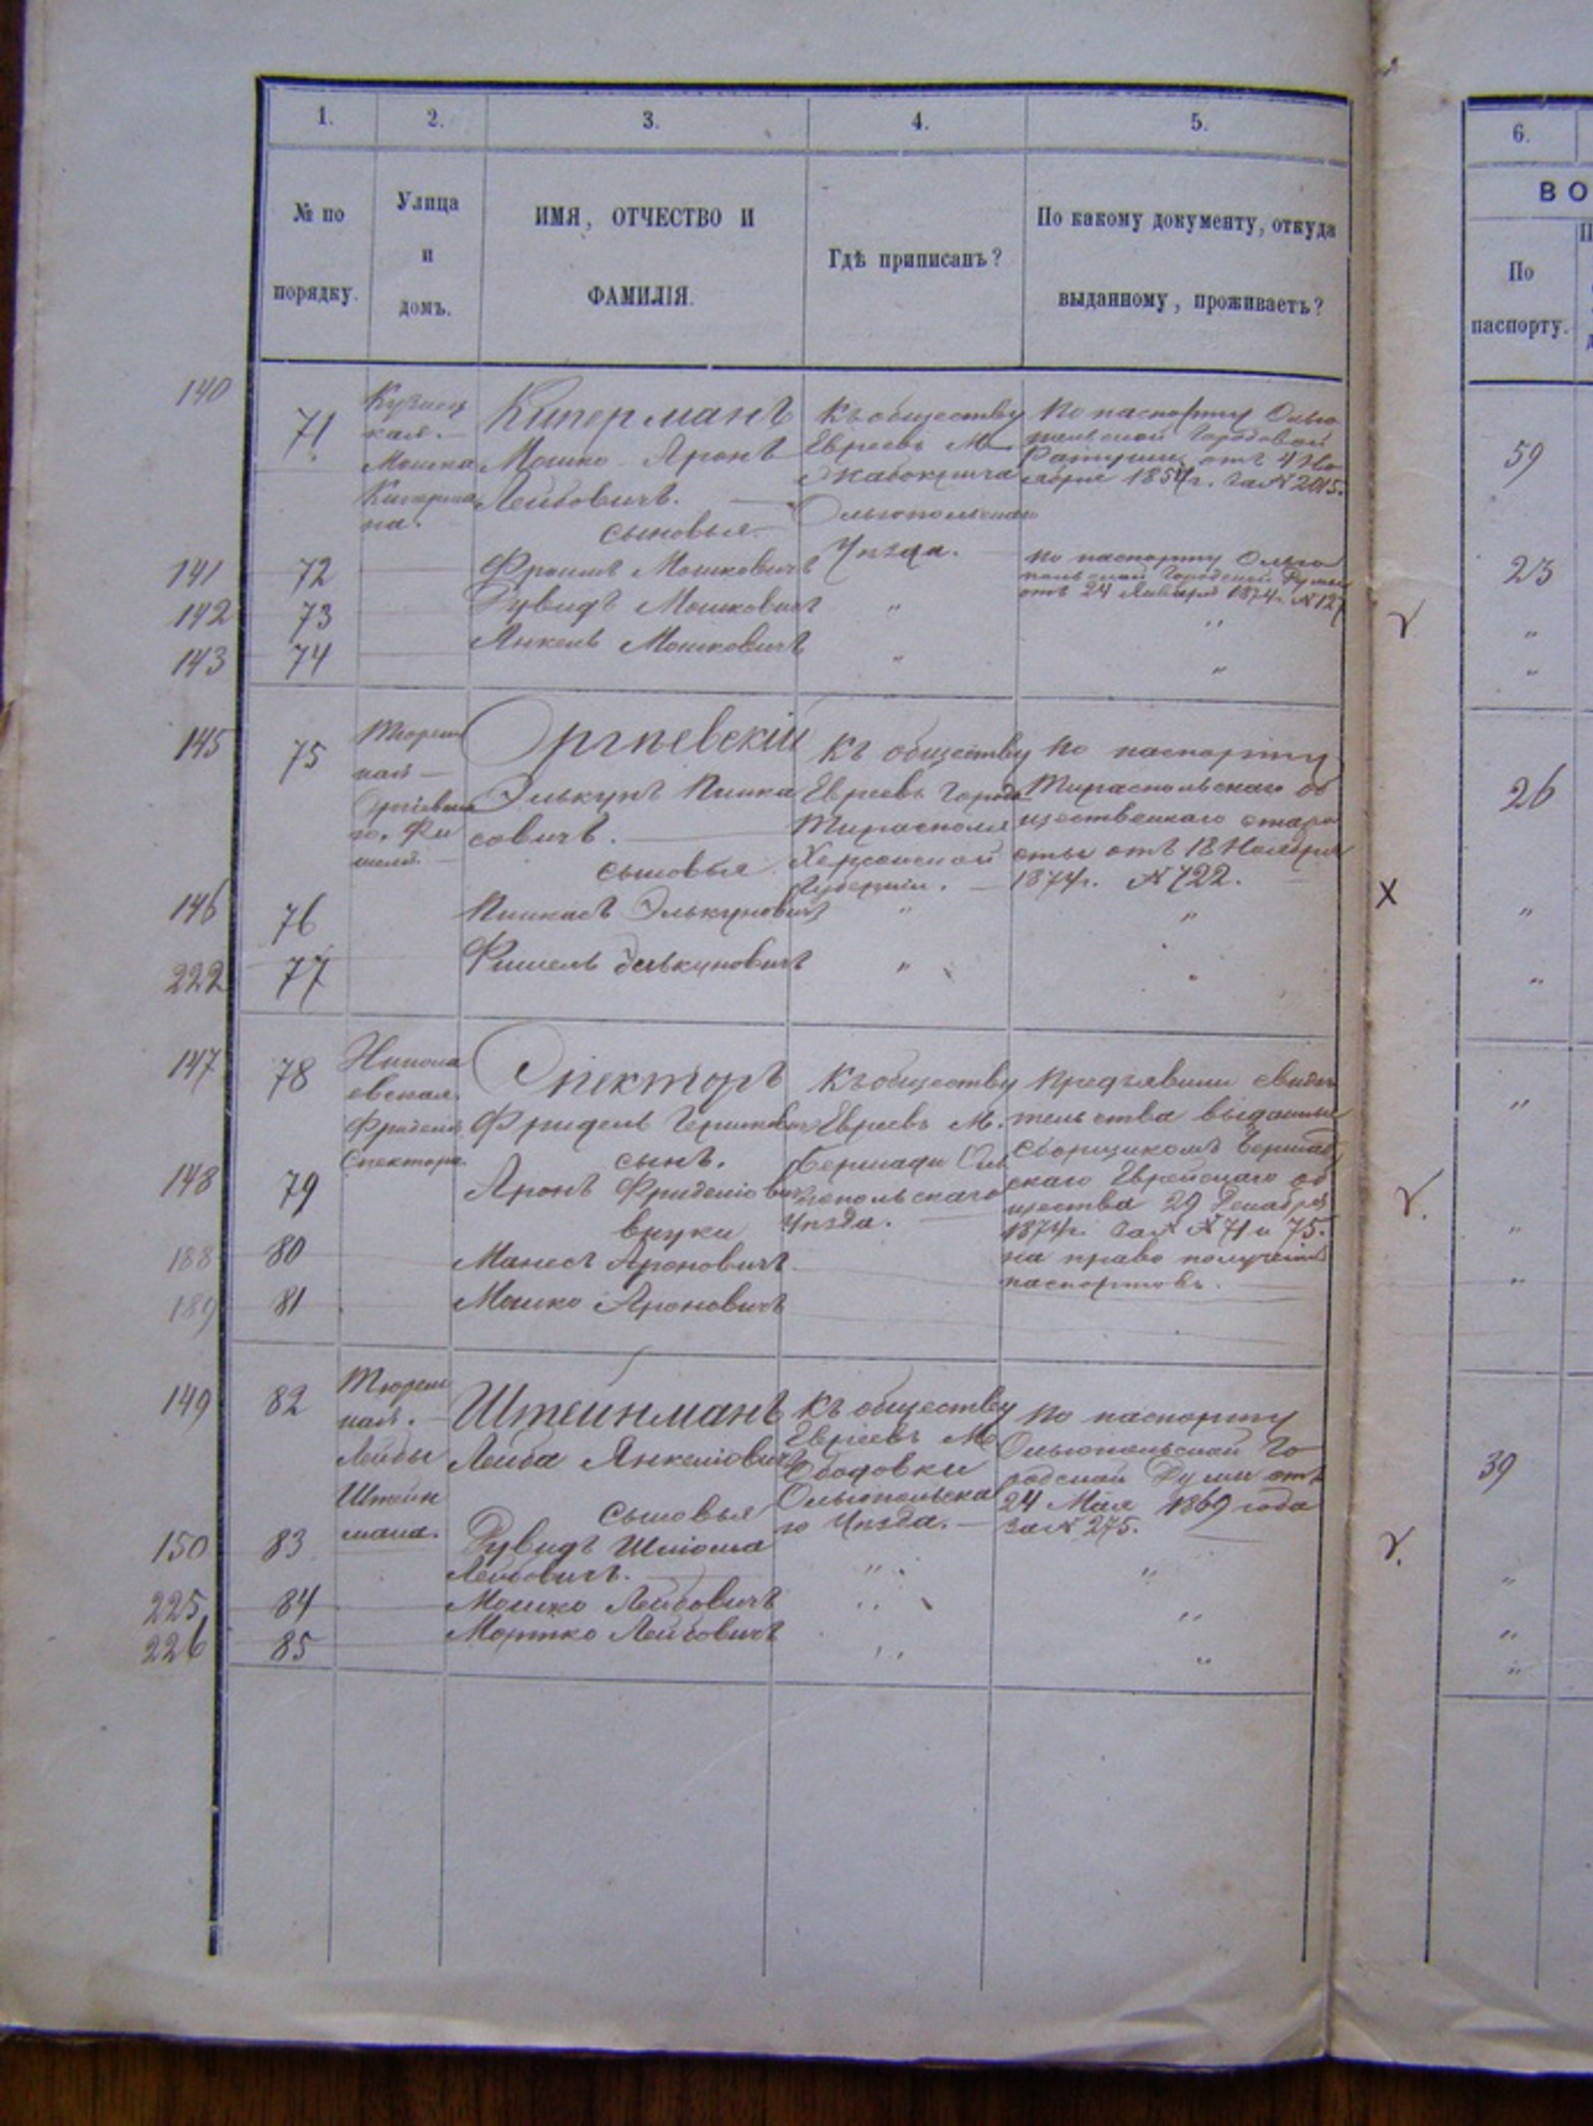 1. 2. 3. 4. 5. 6.
№ по порядку.
Улица и домъ.
ИМЯ, ОТЧЕСТВО И ФАМИЛІЯ.
Гдѣ приписанъ?
По какому документу, откуда выданному, проживаетъ?
ВО
По паспорту.
140
71
Кузнец
кая.
Мошка
Кипермана.
Киперманъ
Мошко Аронъ
Лейбовичъ.
сыновья
Къ обществу
Евреевъ М.
Жабокрича
Ольгопольскаго
Уѣзда.
По паспорту Ольго
польской Городовой
Ратуши отъ 4 Но
ября 1854 г. за № 2015.
59
141
72
Фроимъ Мошковичъ
По паспорту Ольго
польской Городской Думы
отъ 24 Января 1874 г. № 127
23
142
73
Рувидъ Мошковичъ
"
"
"
143
74
Янкель Мошковичъ
"
"
"
145
75
Тюрем
ная
Оргѣевска
го, Фи
шеля.
Оргѣевскій
Элькунъ Пинка
совичъ.
сыновья
Къ обществу
Евреевъ Города
Тирасполя
Херсонской
Губерніи.
По паспорту
Тираспольскаго об
щественнаго старо
сты отъ 18 Ноября
1874 г. № 722.
26
146
76
Пинкасъ Элькуновичъ
"
"
X
"
222
77
Фишель Элькуновичъ
"
"
"
147
78
Никола
евская.
Фриделя
Спектора.
Спекторъ
Фридель Гершковичъ
сынъ.
Къ обществу
Евреевъ М.
Бершади Оль
гопольскаго
Уѣзда.
Предъявили свидѣ
тельства выданныя
сборщикомъ Бершад
скаго Еврейскаго об
щества 29 Декабря
1874 г. за № № 71 и 75.
на право полученія
паспортовъ.
"
148
79
Аронъ Фриделіовичъ
внуки
"
188
80
Манесъ Ароновичъ
"
189
81
Мошко Ароновичъ
149
82
Тюрем
ная.
Лейбы
Штейн
мана.
Штейнманъ
Лейба Янкеліовичъ
сыновья
Къ обществу
Евреевъ М.
Ободовки
Ольгопольска
го Уѣзда.
По паспорту
Ольгопольской Го
родской Думы отъ
24 Мая 1869 года
за № 275.
39
150
83
Рувидъ Шліома
Лейбовичъ.
"
"
"
225
84
Мошко Лейбовичъ
"
"
"
226
85
Мортко Лейбовичъ
"
"
"